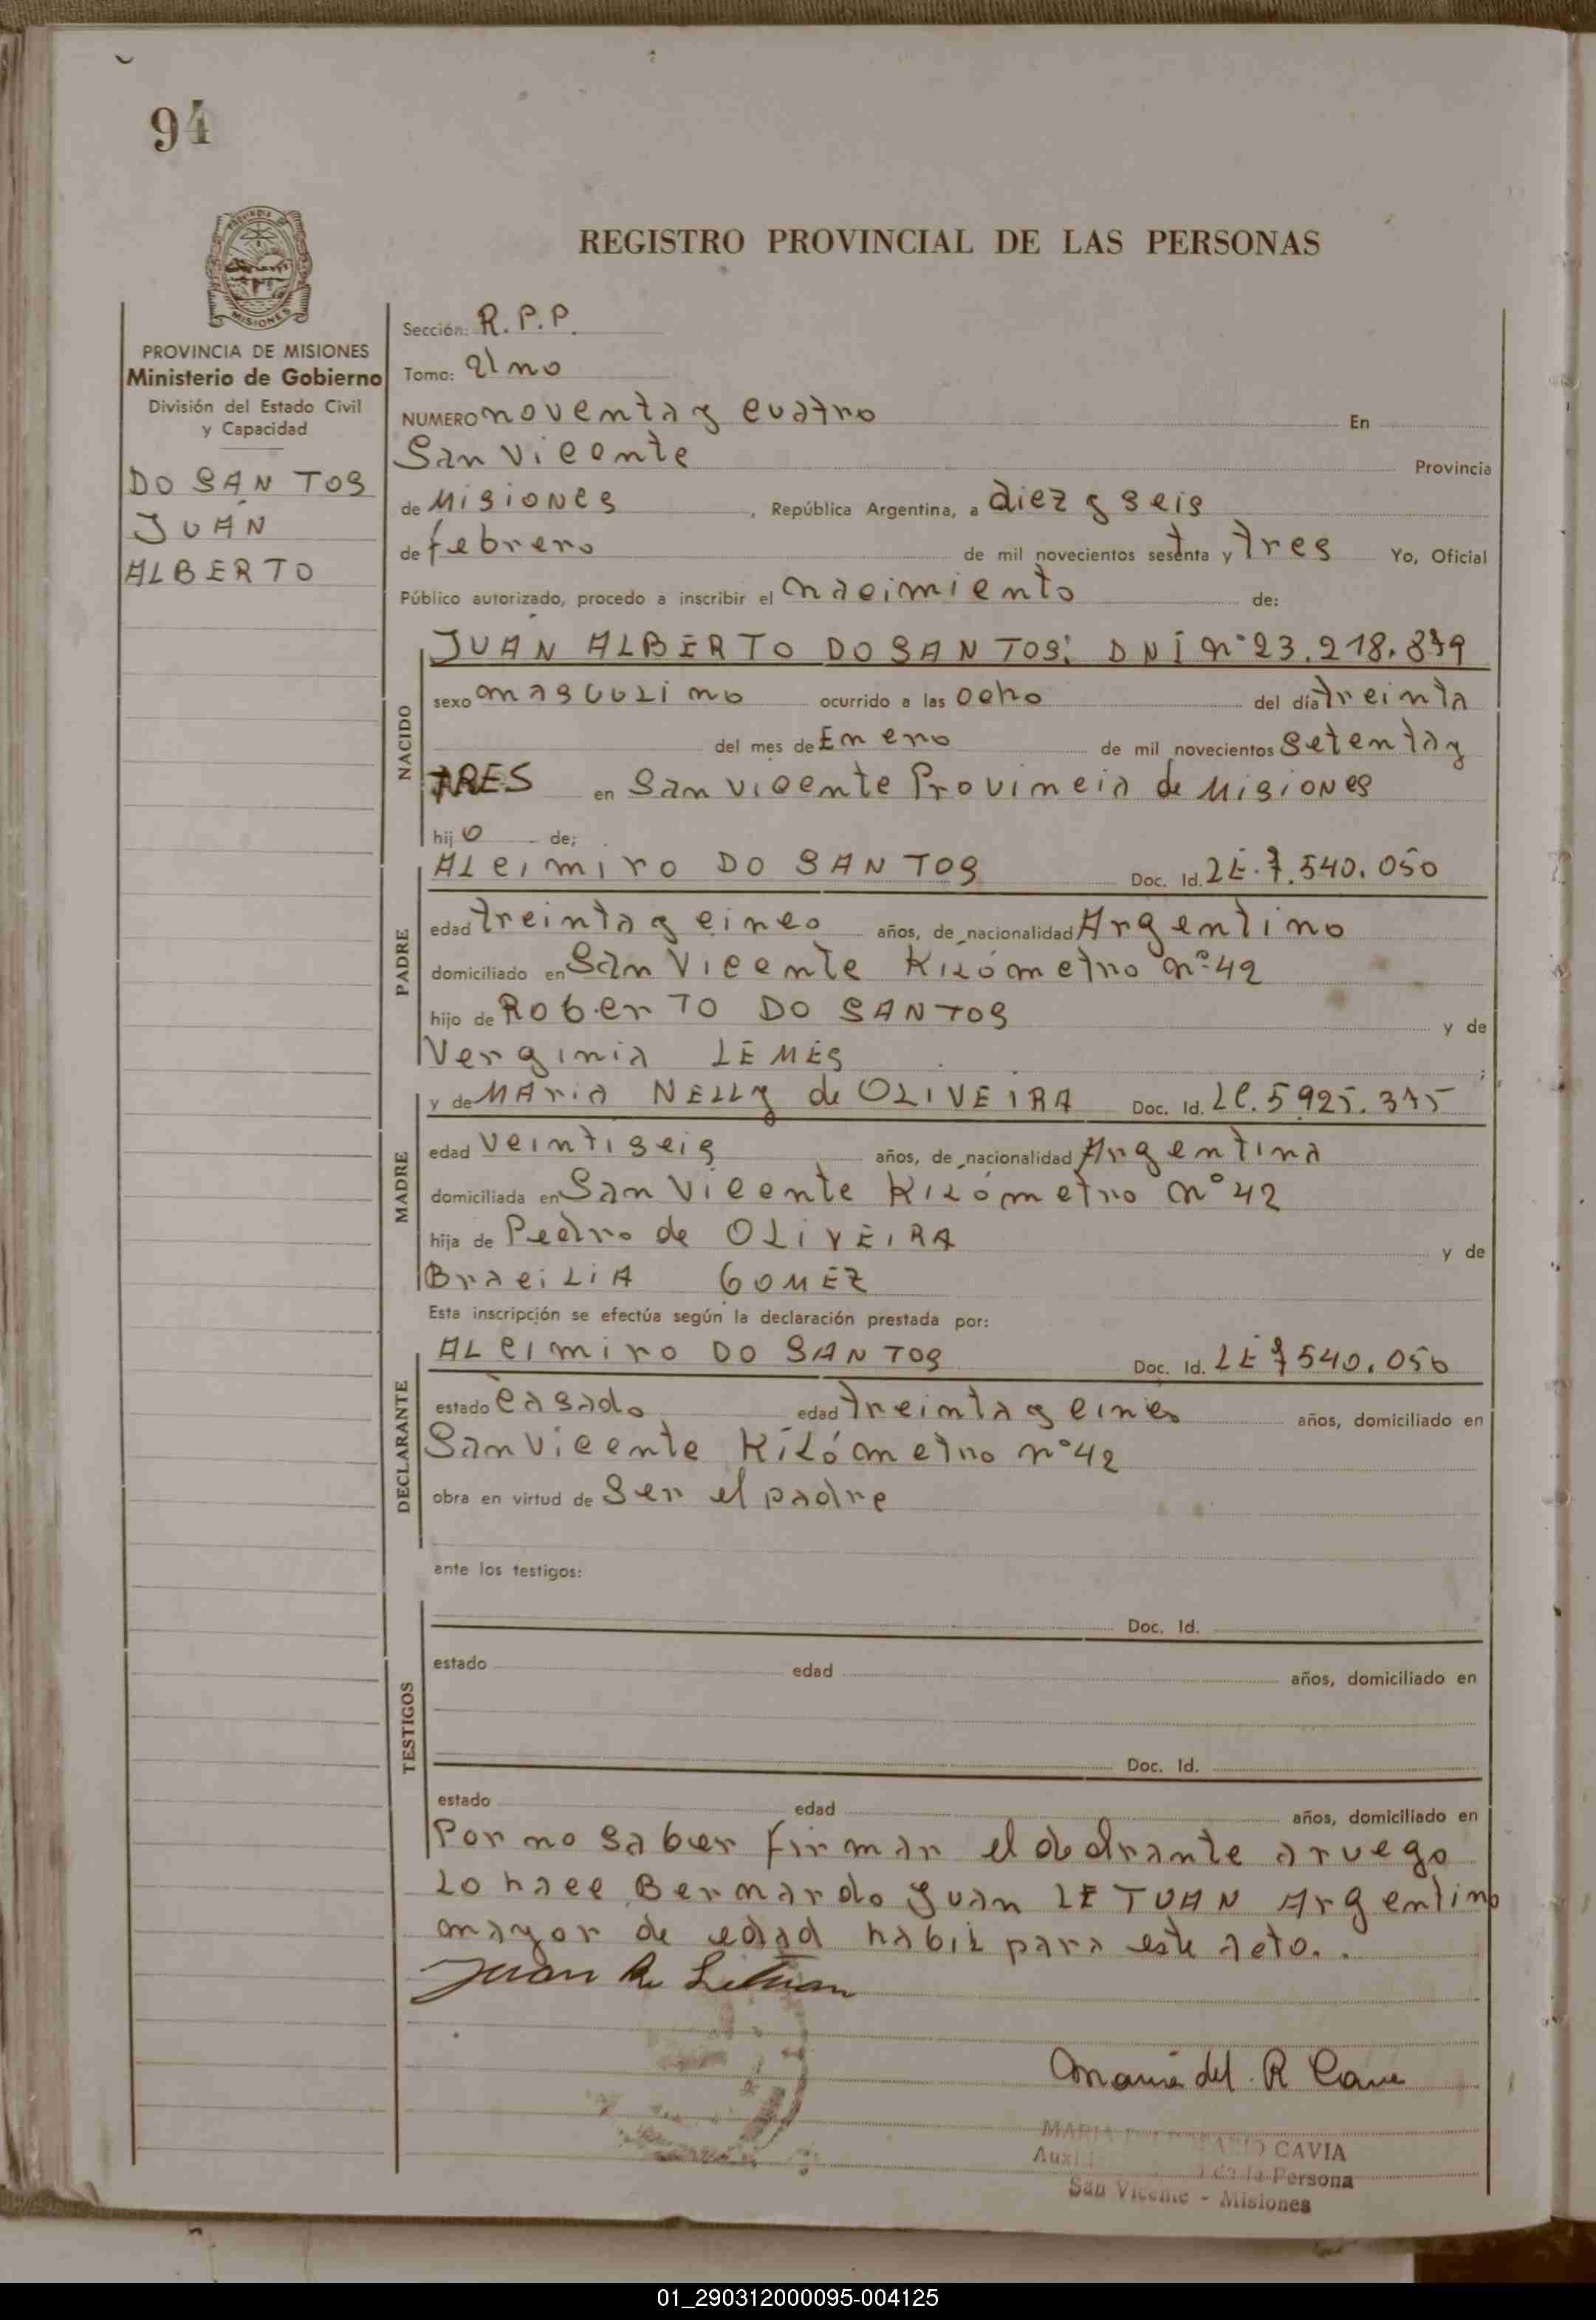 94
REGISTRO PROVINCIAL DE LAS PERSONAS
PROVINCIA DE MISIONES
Ministerio de Gobierno
División del Estado Civil
y Capacidad
DO SANTOS
JUAN
ALBERTO
Sección: R.P.P.
Tomo: Uno
NUMERO noventa y cuatro En
San Vicente Provincia
de Misiones, República Argentina, a diez y seis
de febrero de mil novecientos setenta y tres Yo, Oficial
Público autorizado, procedo a inscribir el nacimiento de:
NACIDO
JUAN ALBERTO DO SANTOS: DNI Nº 23.218.879
sexo masculino ocurrido a las ocho del día treinta
del mes de Enero de mil novecientos setenta y
TRES en San Vicente Provincia de Misiones
hijo de;
PADRE
Alcimiro DO SANTOS Doc. Id. LE. 7.540.050
edad treinta y cinco años, de nacionalidad Argentino
domiciliado en San Vicente Kilómetro nº 42
hijo de Roberto DO SANTOS y de
Verginia LEMES;
MADRE
y de Maria NELLy de OLIVEIRA Doc. Id. LC. 5.925.375
edad veintiseis años, de nacionalidad Argentina
domiciliada en San Vicente Kilómetro nº 42
hija de Pedro de OLIVEIRA y de
Bracilia GOMEZ
Esta inscripción se efectúa según la declaración prestada por:
DECLARANTE
Alcimiro DO SANTOS Doc. Id. LE 7540.050
estado casado edad treinta y cinco años, domiciliado en
San Vicente Kilómetro nº 42
obra en virtud de Ser el padre
ante los testigos:
TESTIGOS
Doc. Id.
estado edad años, domiciliado en
Doc. Id.
estado edad años, domiciliado en
Por no saber firmar el declrante aruego
Lo hace Bernardo Juan LETUAN Argentino
mayor de edad habil para este acto..
Juan B. Letuan
María del R Cavia
MARIA DEL ROSARIO CAVIA
Persona
San Vicente - Misiones
01_290312000095-004125